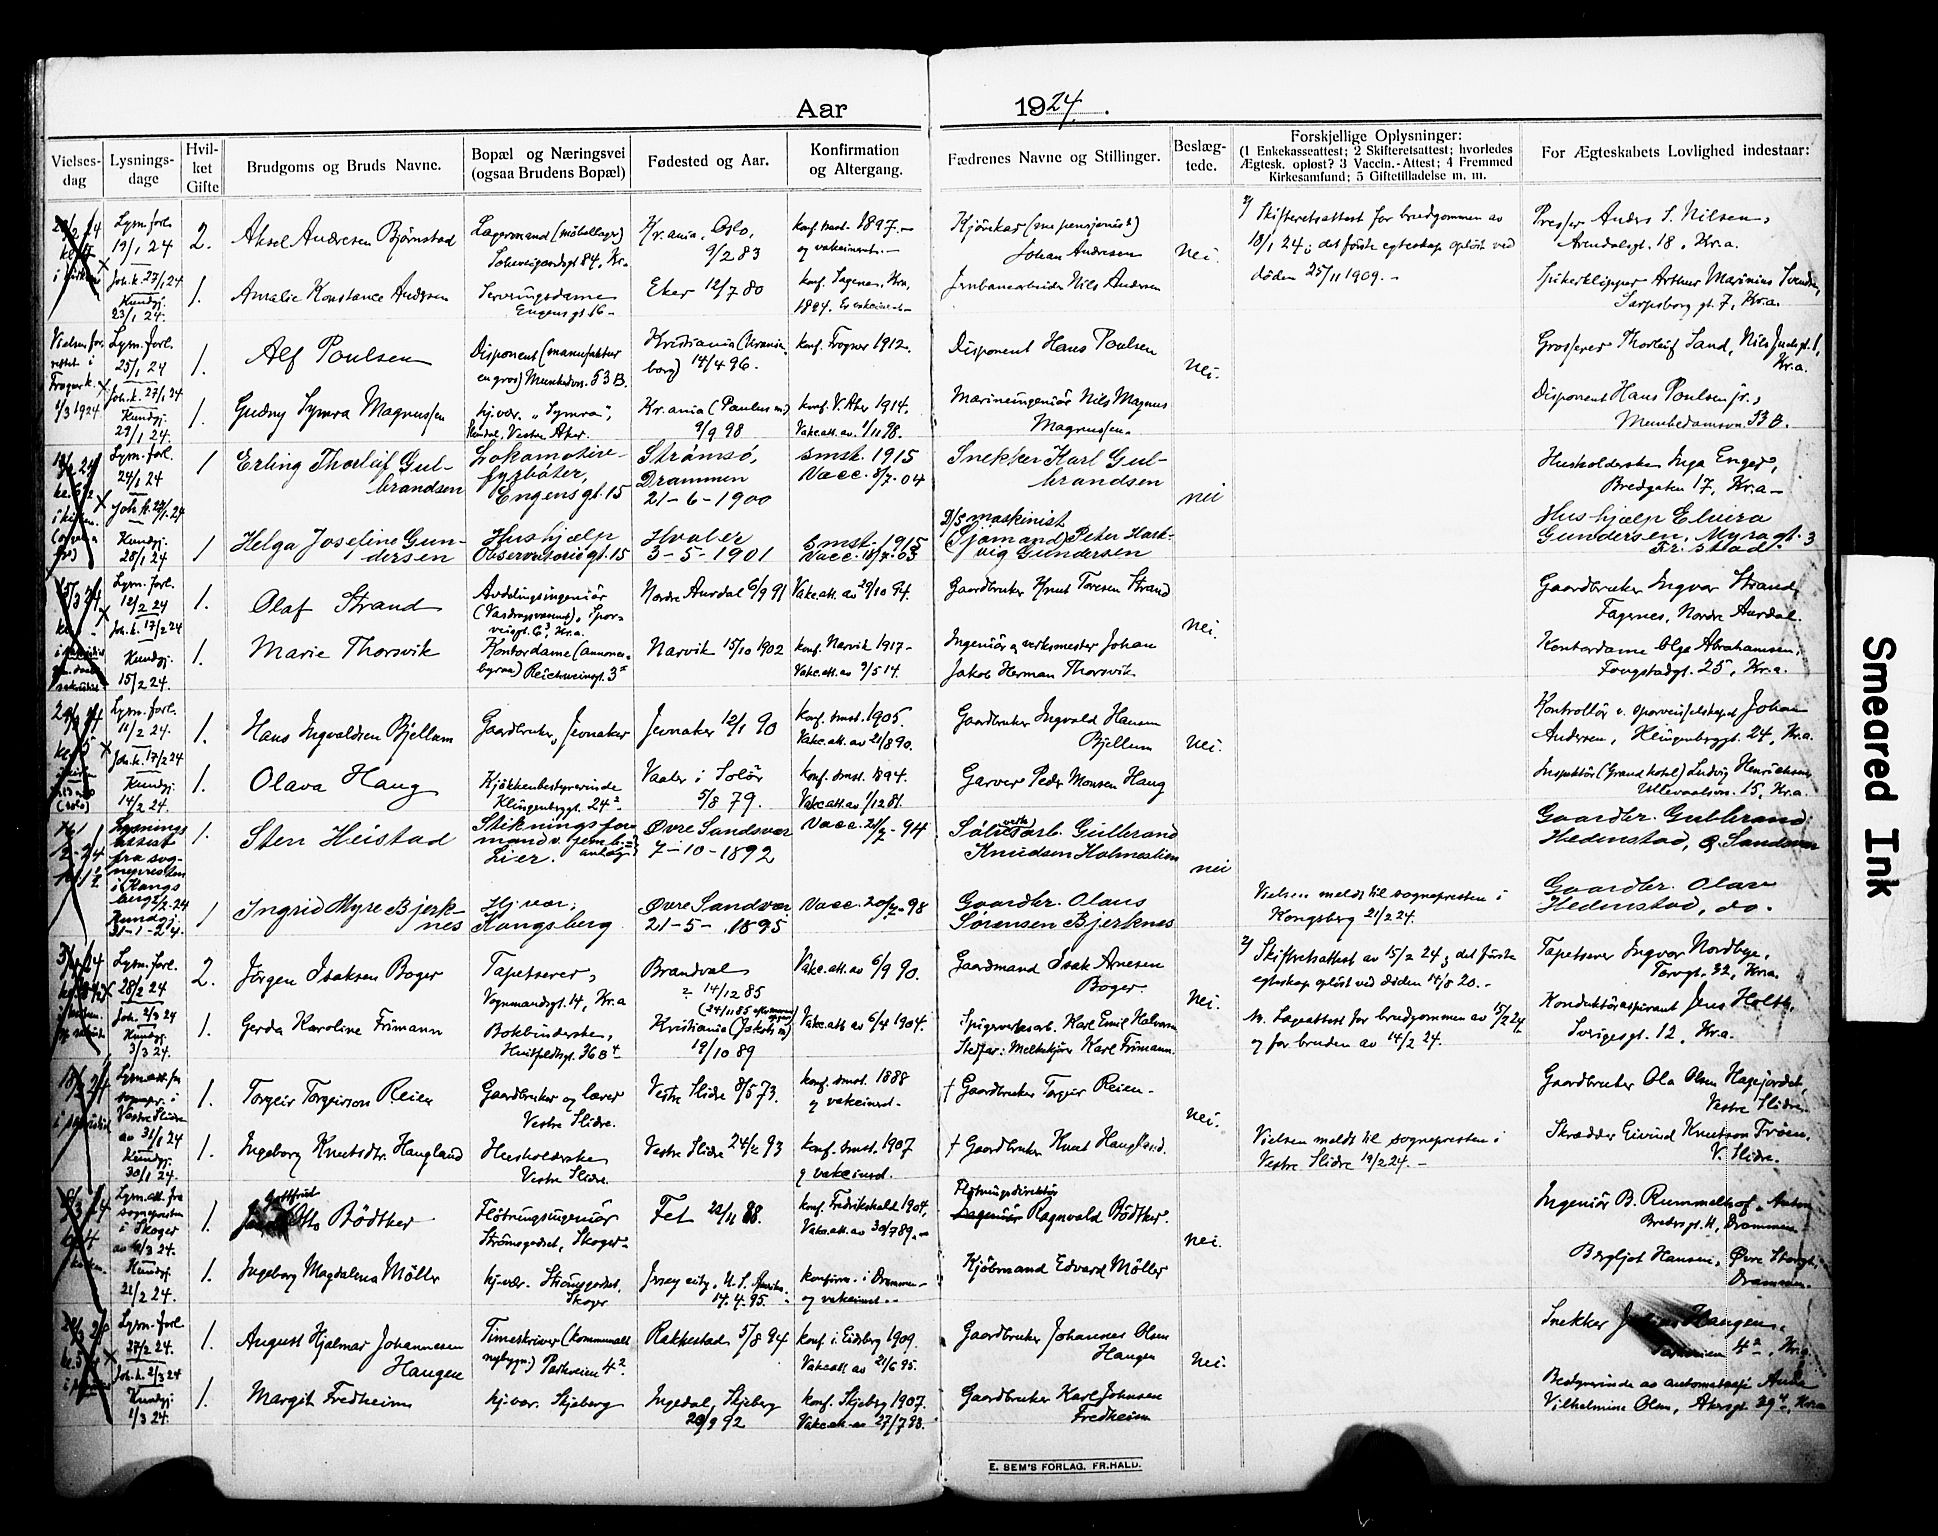 Aar 1924.
Vielses-dag
Lysnings-dage
Hvil-ket Gifte
Brudgoms og Bruds Navne.
Bopæl og Næringsvei (ogsaa Brudens Bopæl)
Fødested og Aar.
Konfirmation og Altergang.
Fædrenes Navne og Stillinger.
Beslæg-tede.
Forskjellige Oplysninger:
(1 Enkekasseattest; 2 Skifteretsattest; hvorledes
Ægtesk. opløst? 3 Vaccin.-Attest; 4 Fremmed
Kirkesamfund; 5 Giftetilladelse m. m.
For Ægteskabets Lovlighed indestaar:
Lysn. forl.
19/1 24
Joh. k. 27/1 24
Kundgj.
23/1 24.
2.
Aksel Andresen Bjørnstad
Lagermand
Kr.ania, Oslo,
9/2 83
1897.
og vakcinert.
Johan Andresen
nei.
2/ Skifteretsattest for brudgommen av
18/1 24; det første egteskap opløst ved
døden 25/11 1909. –
Anders S. Nilsen,
Arendalsgt. 18, Kr.a.
1.
Amalie Konstance Andersen
Serveringsdame
Engens gt 16
Eker 12/7 80
konf. Sagene, Kr.a,
1894.
Jernbanearbeider Nils Andersen
Arthur Marinius Svendsen,
Sarpsborg gt. 7, Kr.a.
Vielsen for-
rettet i
Frogner k.
1/3 1924
Lysn. forl.
25/1 24
Joh. k. 27/1 24
Kundgj.
29/1 24.
1.
Alf Poulsen
Disponent (manufaktur
en gros) Munkedvn. 53 B.
Kristiania (Uranien-
borg) 14/4 96.
konf. Frogner 1912.
Disponent Hans Poulsen
nei.
Grosserer Thorleif Sand, Nils Juelsgt. 1,
Kr.a.
1.
Gudny Symra Magnussen
hj.vær. „Symra",
Vestre Aker.
Kr.ania (Paulus m)
9/9 98
konf. V. Aker 1914.
Vakc.att. av 1/11 98.
Marineingeniør Nils Magnus
Magnussen.
Disponent Hans Poulsen jr.,
Munkedamsvn. 53 B.
Lysn. forl.
24/1 24
Kundgj.
28/1 24
1
Erling Thorleif Gul-
brandsen
Lokomotiv-
fyrbøter,
Engens gt. 15
Strømsø,
Drammen
21-6-1900
smst. 1915
Vacc. 8/7-04
Snekker Karl Gul-
brandsen
nei
Husholderske Inga Enger,
Bredgaten 17, Kr.a
1
Helga Joseline Gun-
dersen
Hushjælp
Observatoriegt. 15
Hvaler
3-5-1901
smst. 1915
D/S maskinist
(Sjømand) Peter Hart-
vig Gundersen
Hushjælp Elvira
Gundersen, Myragt. 3
Fr.stad.
Lysn. forl.
12/2 24
Joh. k. 17/2 24
Kundgj.
15/2 24.
1.
Olaf Strand
Avdelingsingeniør
Kr.a.
Nordre Aurdal 6/9 91
Vakc.att. 29/10 94.
Gaardbruker Knut Toresen Strand
nei.
Gaardbruker Ingvar Strand,
Fagernes, Nordre Aurdal.
1.
Marie Thorsvik
Kontordame (annonce-
byraa)
Narvik 15/10 1902
konf. Narvik 1917 -
Vakc.att. av 9/5 14.
Ingeniør og verksmester Johan
Jakob Herman Thorsvik
Kontordame Olga Abrahamsen,
Kr.a.
Lysn. forl.
11/2 24.
Joh. k. 17/2 24
Kundgj.
14/2 24.
1.
Hans Ingvaldsen Bjellum
Gaardbruker, Jevnaker
Jevnaker 12/1 90
konf. smst. 1905.
Vakc.att. av 21/8 90.
Gaardbruker Ingvald Hansen
Bjellum
nei.
Kontrollør v. sporveisselskapet Johan
Andersen, Klingenberggt. 24, Kr.a.
1.
Olava Haug
Kjøkkenbestyrerinde
Klingenberggt. 24²
Vaaler i Solør
5/8 79.
konf. smst. 1894.
Vakc.att. av 1/12 81.
Garver Peder Monsen Haug
Inspektør (Grand hotel) Ludvig Henrichsen,
Ullevaalsvn. 15, Kr.a.
Lysnings
attest
fra sog-
nepresten
i Kongs
berg
Kundgj.
31-1-24.
1.
Sten Heistad
Stikningsfor-
mand v. jernb.-
anlæg
Lier.
Øvre Sandsvær
7-10-1892
Sølvverksarb. Gulbrand
Knudsen Holmestien
nei
Gaardbr. Gulbrand
Hedenstad, Ø. Sandsvær
1
Ingrid Myre Bjerk-
nes
Hj.vær.
Kongsberg
Øvre Sandsvær
21-5-1895
Gaardbr. Olaus
Sørensen Bjerknes
Vielsen meldt til sognepresten i
Kongsberg 21/2 24.
Gaardbr. Olav
Hedenstad, do.
Lysn. forl.
28/2 24
Joh. 2/3 24
Kundgj.
3/3 24.
2.
Jørgen Isaksen Boger
Tapetserer,
Vognmandsgt. 14, Kr.a
Brandval
14/12 85
Vakc.att. av 6/9 90.
Gaardmand Isak Arnesen
Boger.
nei.
2/ Skifteretsattest av 15/2 24; det første
egteskap opløst ved døden 14/8 20. -
Tapetserer Ingvar Nordbye,
Torvgt. 32, Kr.a.
1.
Gerda Karoline Frimann
Bokbinderske,
Huitfeldtsgt. 36 B⁴
Kristiania (Jakobs m)
19/10 89
Vakc.att. av 6/4 1904.
Spigerverksarb. Karl Emil Halvorsen
Stedfar: Melkekjører Karl Frimann.
Lægeattest for brudgommen av 15/2 24
og for bruden av 14/2 24.
Konduktøraspirant Jens Holth,
Sverigesgt. 12, Kr.a.
Vestre Slidre
av 31/1 24
Kundgj.
30/1 24.
1.
Torgeir Torgeirson Reien
Gaardbruker og lærer
Vestre Slidre.
Vestre Slidre 8/5 73.
konf. smst. 1888
og vakcinert.
† Gaardbruker Torgeir Reien.
nei.
Gaardbruker Ola Olsen Hagejordet
Vestre Slidre.
1.
Ingeborg Knutsdtr. Haugland
Husholderske
Vestre Slidre.
Vestre Slidre 24/2 93
konf. smst. 1907
og vakcinert.
† Gaardbruker Knut Haugland.
Vielsen meldt til sognepresten i
Vestre Slidre 19/2 24. -
Skrædder Eivind Knutson Frøen,
V. Slidre.
Lysn.att. fra
sognepresten
i Skoger
Kundgj.
21/2 24.
1.
Gottfred
Otto Bödtker
Fløtningsingeniør
Strömsgodset, Skoger
Fet 22/11 88.
konf. Fredrikshald 1904,
Vakc.att. av 30/7 89.
Fløtningsdirektør
Ingeniør Ragnvald Bödtker.
nei.
Ingeniør B. Rummelhof, Anton
Drammen
1.
Ingeborg Magdalena Möller
hj.vær. Strömsgodset,
Skoger
Jersey city, U. S. Amerika.
14.4.95.
konfirm. i Drammen
og vakcinert.
Kjöbmand Edvard Möller
Bergljot Hansen, Øvre Storgt.
Drammen.
Lysn. forl
27/2 24.
Joh. k. 2/3 24
Kundgj.
1/3 24.
1.
August Hjalmar Johannesen
Haugen
Timeskriver (kommunalt
nybygn.) Parkveien 4²
Rakkestad 5/8 94
konf. i Eidsberg 1909.
Vakc.att. av 21/6 95.
Gaardbruker Johannes Olsen
Haugen
nei.
Snekker Haugen,
Parkveien 4², Kr.a.
1.
Margit Fredheim
hj.vær. Skjeberg
Ingedal, Skjeberg
konf. Skjeberg 1907.
Gaardbruker Karl Johnsen
Fredheim
Bestyrerinde av automatkafé Anna
Vilhelmine Olsen, Akersgt. 29⁴, Kr.a
E. SEM'S FORLAG, FR.HALD.
Smeared Ink